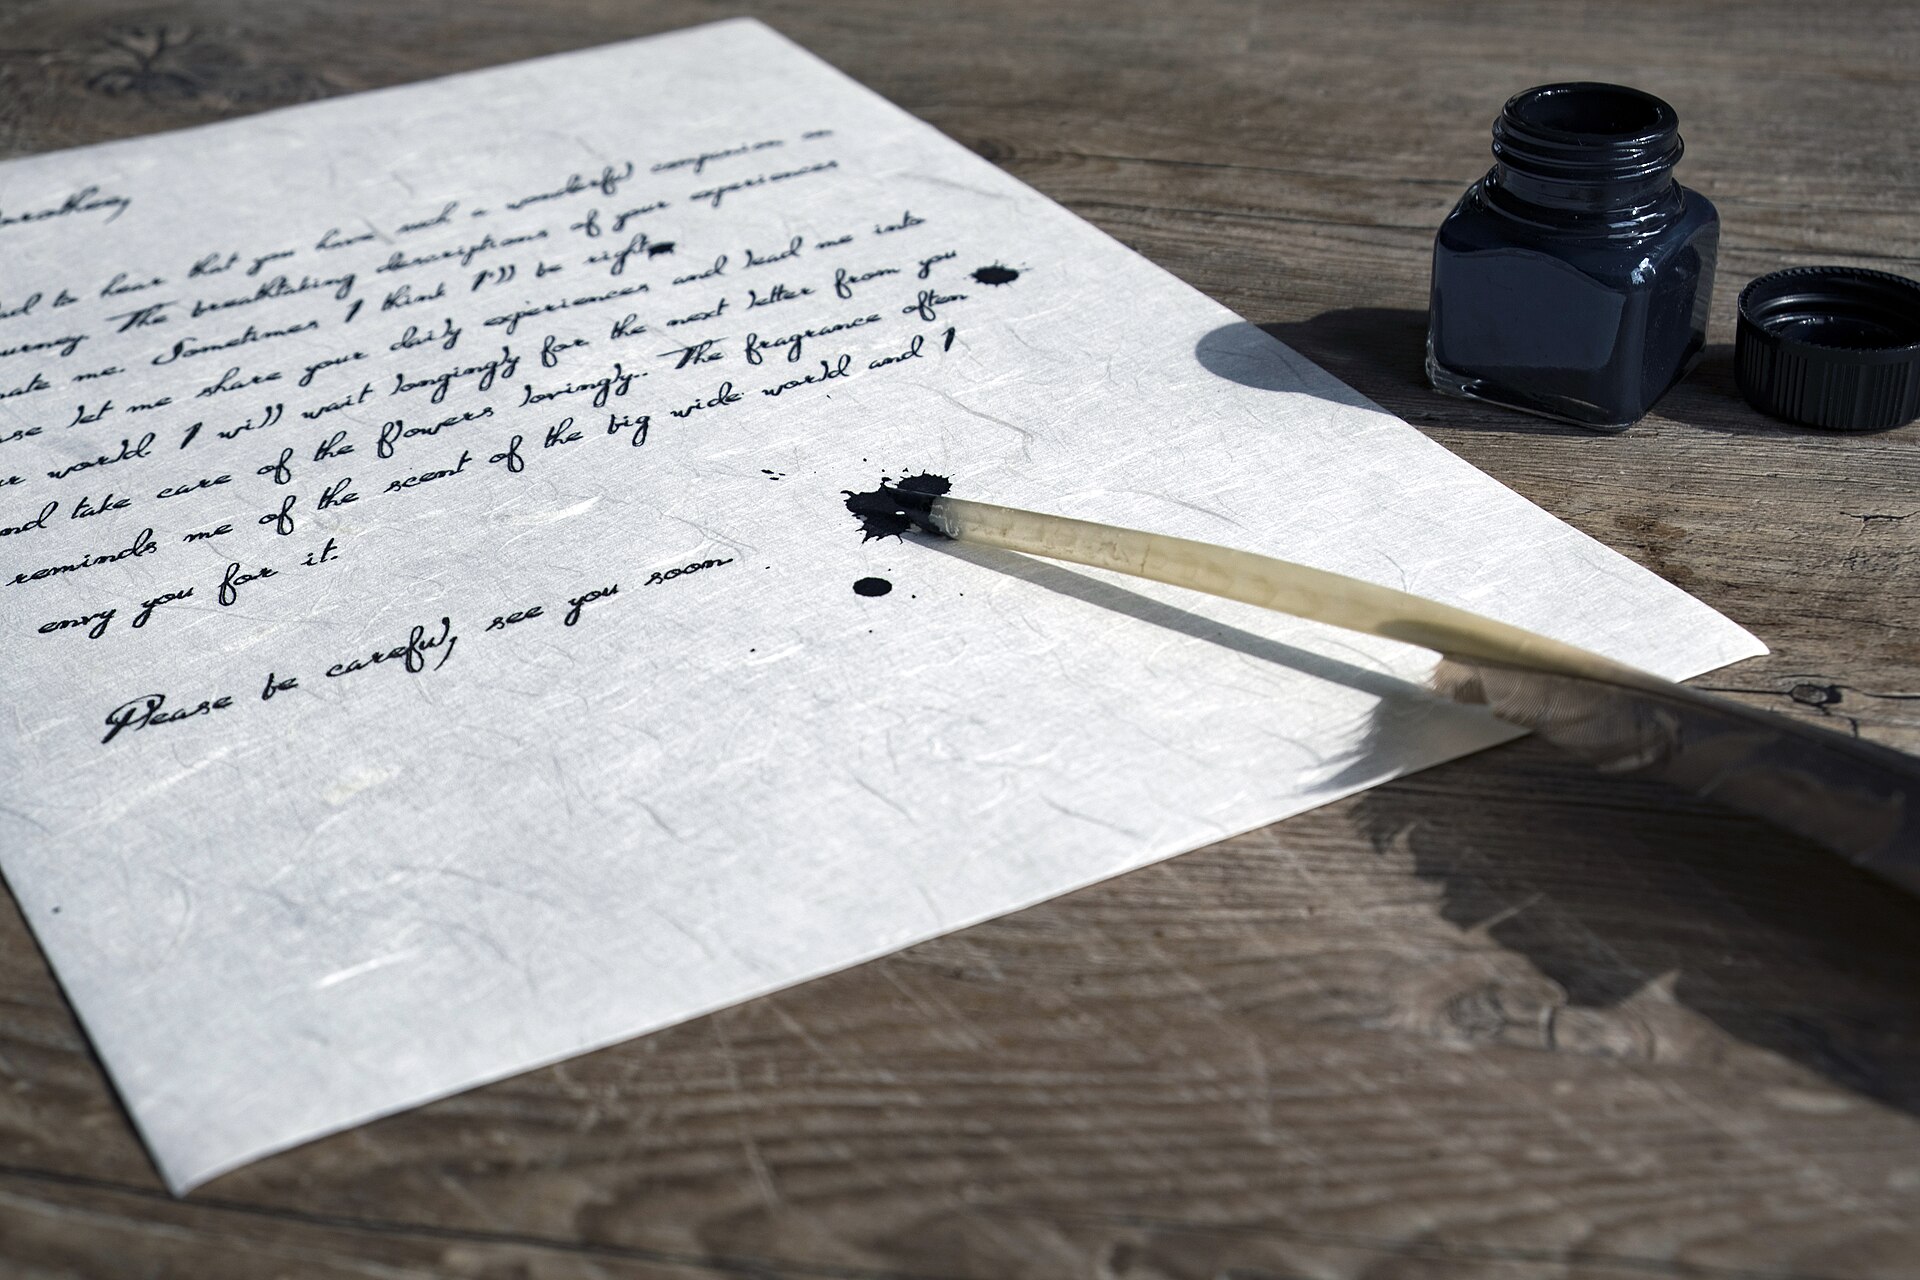 to hear that you have such a wonderful companion on
The breathtaking descriptions of your experiences
me. Sometimes I think I'll be right
let me share your daily experiences and lead me into
world. I will wait longingly for the next letter from you
take care of the flowers lovingly.. The fragrance often
reminds me of the scent of the big wide world and I
envy you for it.
Please be careful, see you soon